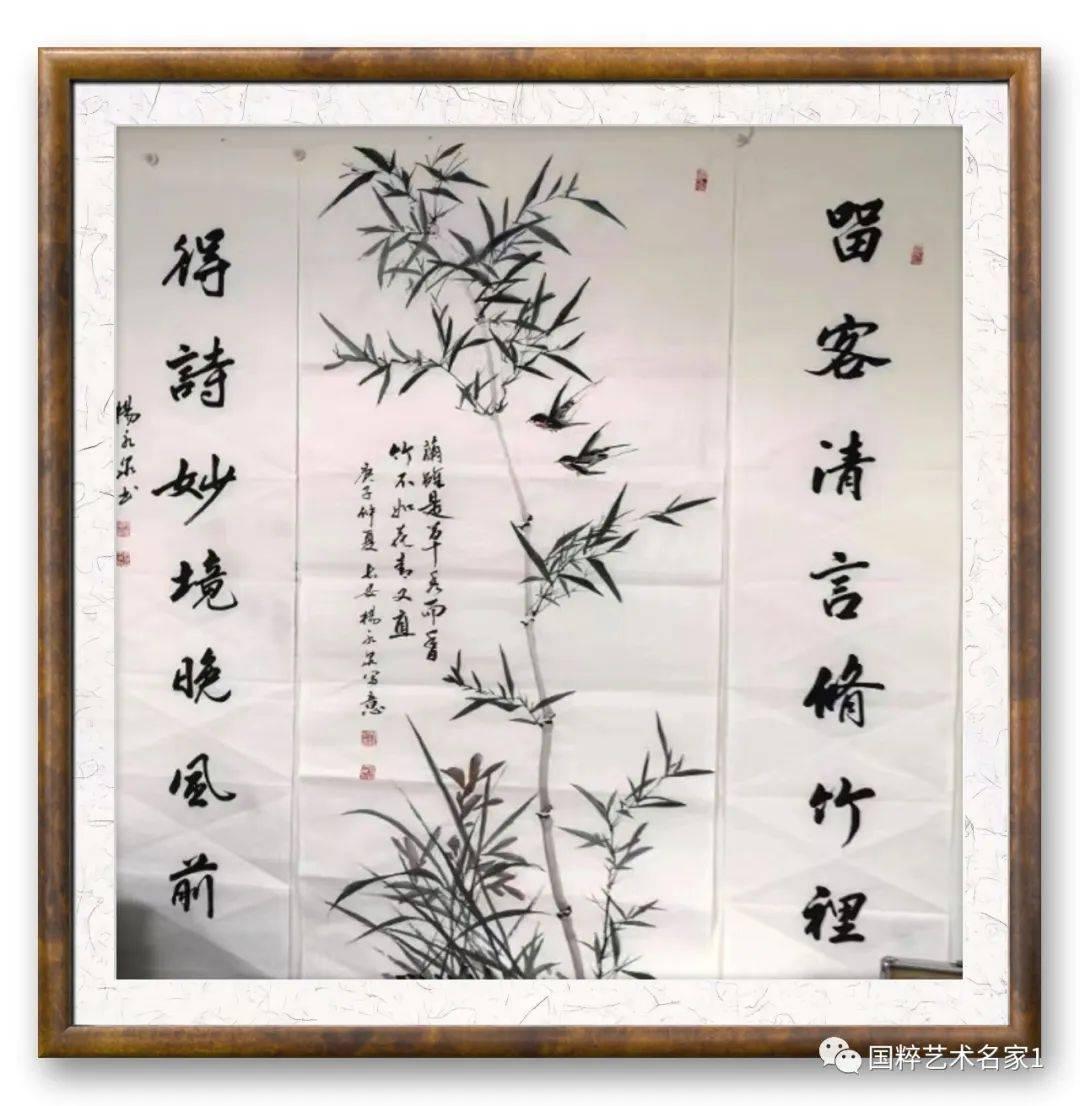 留客清言脩竹裡
蘭雖是草秀而香
竹不如花青又直
庚子仲夏长安楊永泉写意
得詩妙境晚風前
楊永泉书
国粹艺术名家1